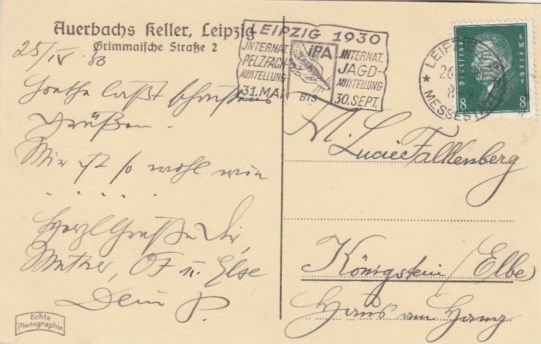 Auerbachs Keller, Leipzig
Grimmaische Straße 2
25/IV 30
Goethe läßt schönstens
Grüßen.
Mir ist so wohl wie
. . . . . .
Herzl Grüße Dir,
Mutter, u. Else
Dein P.
Echte
Photographie
LEIPZIG 1930
INTERNAT.
PELZFACH-
AUSSTELLUNG
31. MAI
IPA
BIS
INTERNAT.
JAGD-
AUSSTELLUNG
30. SEPT.
LEIPZIG
MESSESTADT
8 8
Lucie Falkenberg
Königstein/Elbe
Haus am Hang